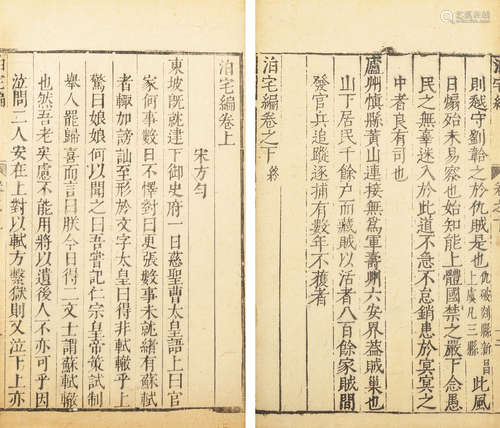 泊宅編
則越守劉韐之仇賊是也仇破剡縣新昌上虞凡三縣此風
日煽始未易察也始知能上體國禁之嚴下念愚
民之無辜迷入於此道不急不怠銷患於冥冥之
中者良有司也
廬州慎縣黃山連接無為軍壽州六安界盜賊巢也
山下居民千餘户而藏賊以活者八百餘家賊間
發官兵追蹤逐捕有數年不獲者
泊宅編卷之下終
泊宅編卷上
宋方勺
東坡旣就逮下御史府一日慈聖曹太皇語上曰官
家何事數日不懌對曰更張數事未就緒有蘇軾
者輒加謗訕至形於文字太皇曰得非軾轍乎上
驚曰娘娘何以聞之曰吾嘗記仁宗皇帝策試制
舉人罷歸喜而言曰朕今日得二文士謂蘇軾轍
也然吾老矣慮不能用將以遺後人不亦可乎因
泣問二人安在上對以軾方繫獄則又泣下上亦
泊宅編